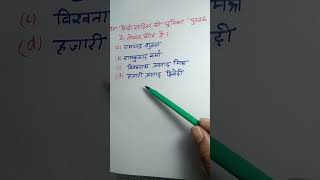 (c) विश्वनाथ
(d) हजारी
हिन्दी साहित्य की भूमिका पुस्तक
के लेखक कौन है ?
(a) रामचन्द्र शुक्ल
(b) रामकुमार वर्मा
(c) विश्वनाथ प्रसाद मिश्र
(d) हजारी प्रसाद द्विवेदी